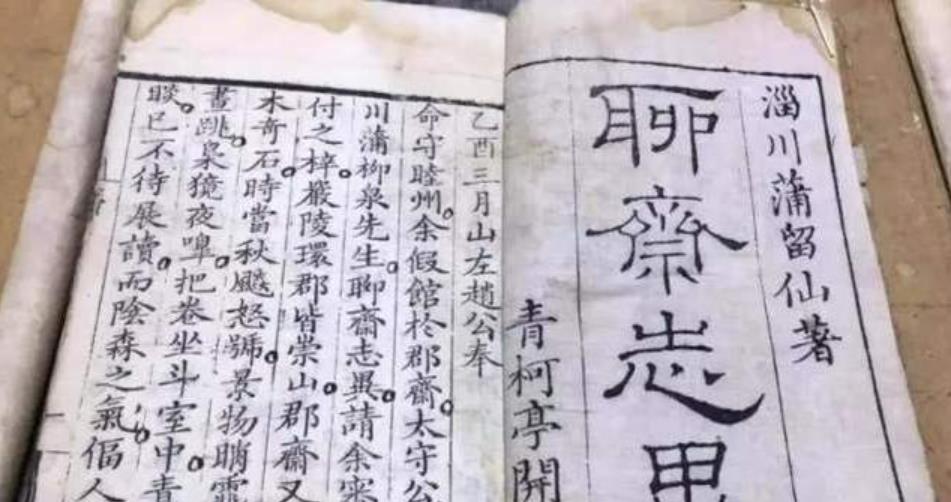 淄川蒲留仙著
聊齋志異
青柯亭開
乙酉三月山左趙公奉
命守睦州。余假館於郡齋。太守公
川蒲柳泉先生。聊齋志異。請余審
付之梓。嚴陵環郡皆崇山。郡齋又
木奇石。時當秋飈怒號。景物睄
晝跳。梟獍夜嘷。把卷坐斗室中。青
睒。已不待展讀。而陰森之氣。偪人